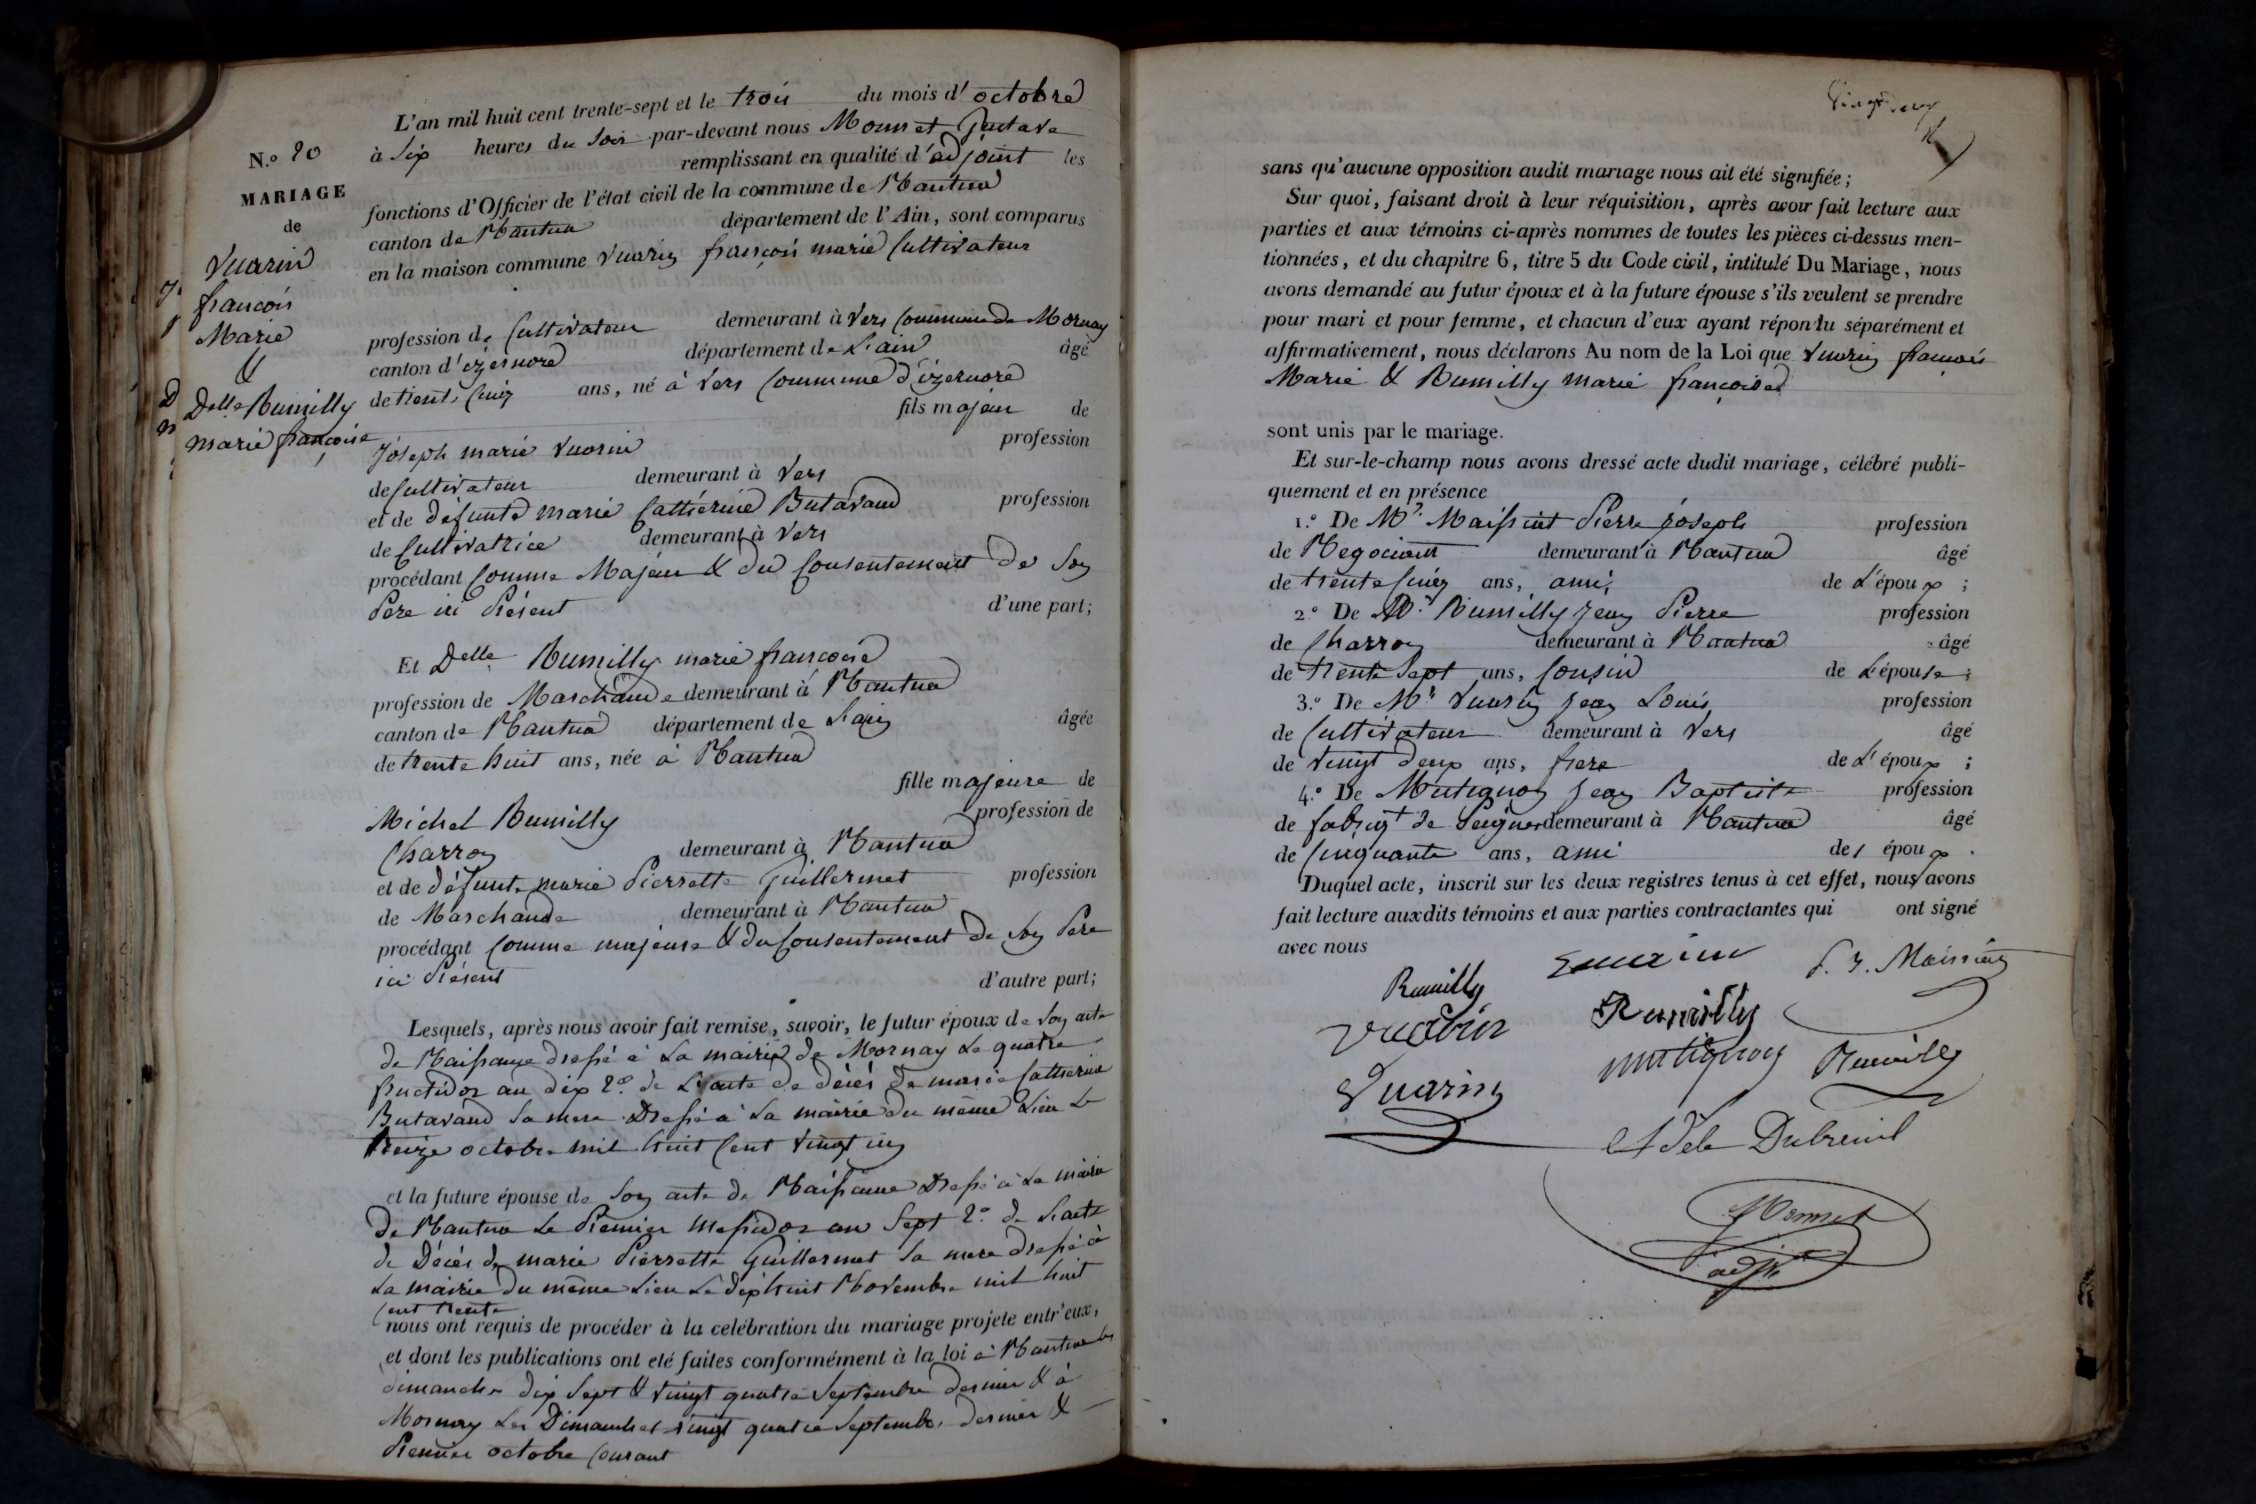 N.o 20
MARIAGE
de
Vuarin
françois
Marie
&
Delle Rumilly
marie françoise
L'an mil huit cent trente-sept et le trois du mois d'octobre
à six heures du soir par-devant nous Monnet Gustave
remplissant en qualité d'adjoint les
fonctions d'Officier de l'état civil de la commune de Nantua
canton de Nantua département de l'Ain, sont comparus
en la maison commune Vuarin françois marie Cultivateur
profession de Cultivateur demeurant à Vers Commune de Mornay
canton d'izernore département de L'ain âgé
de trente cinq ans, né à Vers Commune d'izernore
fils majeur de
Joseph marie Vuarin profession
de Cultivateur demeurant à Vers
et de défunte marie Catherine Butavand profession
de Cultivatrice demeurant à Vers
procédant Comme Majeur & du Consentement de son
Pere ici Présent d'une part;
Et Delle Rumilly marie françoise
profession de Marchande demeurant à Nantua
canton de Nantua département de L'ain âgée
de trente huit ans, née à Nantua
fille majeure de
Michel Rumilly profession de
Charron demeurant à Nantua
et de défunte marie Pierrette Guillermet profession
de Marchande demeurant à Nantua
procédant Comme majeure & du Consentement de son Pere
ici Présent d'autre part;
Lesquels, après nous avoir fait remise, savoir, le futur époux de son acte
de Naissance dressé à La mairie de Mornay Le quatre
fructidor an dix 2o. de L'acte de décès de marie Catherine
Butavand sa mere Dressé à La mairie du même Lieu Le
treize octobre mil huit Cent vingt cinq
et la future épouse de son acte de Naissance Dressé à La mairie
de Nantua Le Premier Messidor an Sept 2o. de L'acte
de Décès de marie Pierrette Guillermet sa mere dressé à
La mairie du même Lieu Le dix huit Novembre mil huit
Cent trente
nous ont requis de procéder à la celébration du mariage projeté entr'eux,
et dont les publications ont été faites conformément à la loi à Nantua les
dimanches dix Sept & vingt quatre Septembre dernier & à
Mornay Les Dimanches vingt quatre Septembre dernier &
Premier octobre Courant
Vingt deux
sans qu'aucune opposition audit mariage nous ait été signifiée;
Sur quoi, faisant droit à leur réquisition, après avoir fait lecture aux
parties et aux témoins ci-après nommés de toutes les pièces ci-dessus men-
tionnées, et du chapitre 6, titre 5 du Code civil, intitulé Du Mariage, nous
avons demandé au futur époux et à la future épouse s'ils veulent se prendre
pour mari et pour femme, et chacun d'eux ayant répondu séparément et
affirmativement, nous déclarons Au nom de la Loi que Vuarin françois
Marie & Rumilly marie françoise
sont unis par le mariage.
Et sur-le-champ nous avons dressé acte dudit mariage, célébré publi-
quement et en présence
1.o De Mr. Maissiat Pierre joseph profession
de Negociant demeurant à Nantua âgé
de trente Cinq ans, ami de L'époux;
2.o De Mr. Rumilly Jean Pierre profession
de Charron demeurant à Nantua âgé
de trente Sept ans, Cousin de L'épouse;
3.o De Mr Vuarin Jean Louis profession
de Cultivateur demeurant à Vers âgé
de vingt deux ans, frere de L'époux;
4.o De Mutignon Jean Baptiste profession
de fabriqt de Peignes demeurant à Nantua âgé
de Cinquante ans, ami des époux.
Duquel acte, inscrit sur les deux registres tenus à cet effet, nous avons
fait lecture auxdits témoins et aux parties contractantes qui ont signé
avec nous
Rumilly Vuarin P. J. Maissiat
Vuarin Rumilly
Vuarin mutignon Rumilly
Adele Dubreuil
Monnet
adjt